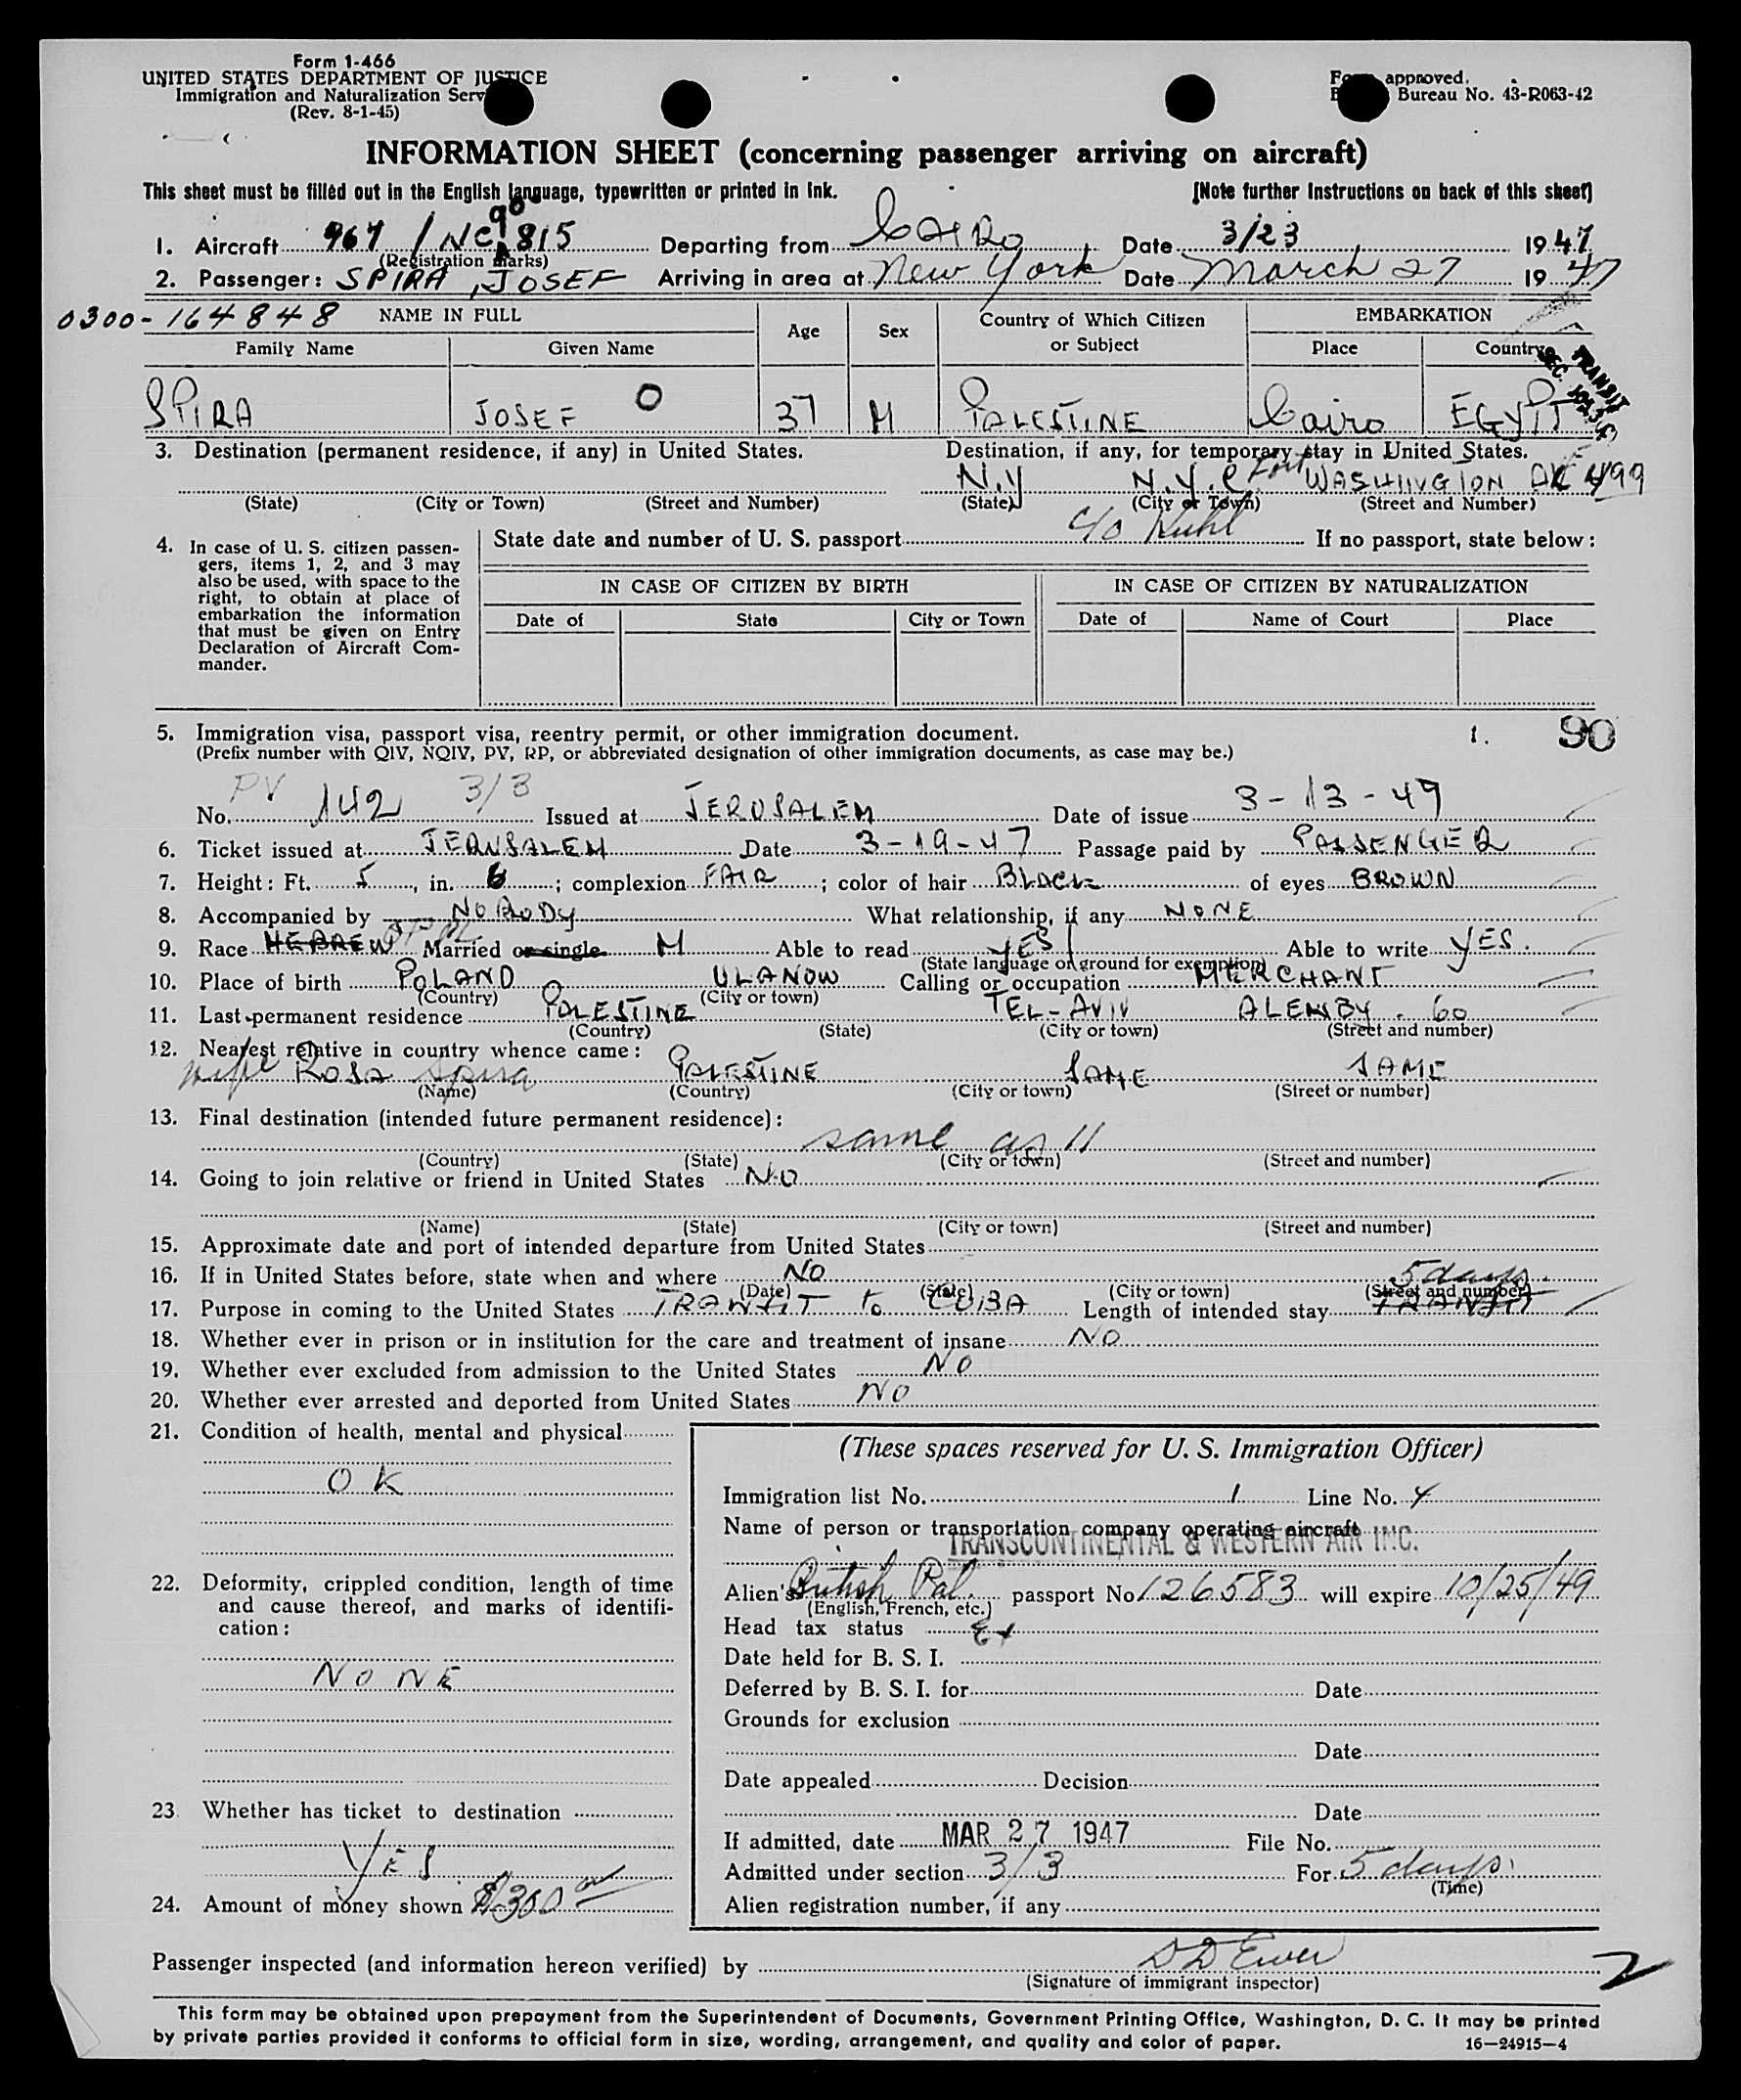 Form 1-466
UNITED STATES DEPARTMENT OF JUSTICE
Immigration and Naturalization Serv
(Rev. 8-1-45)
approved.
Bureau No. 43-R063-42
INFORMATION SHEET (concerning passenger arriving on aircraft)
This sheet must be filled out in the English language, typewritten or printed in ink. [Note further Instructions on back of this sheet]
1. Aircraft 967 / NC 90815 Departing from CAIRO Date 3/23 1947
(Registration marks)
2. Passenger: SPIRA, JOSEF Arriving in area at New York Date March 27 1947
0300-164848 NAME IN FULL Age Sex Country of Which Citizen or Subject EMBARKATION
Family Name Given Name Place Country
TRANSIT
SPIRA JOSEF O 37 M PALESTINE Cairo EGYPT
3. Destination (permanent residence, if any) in United States. Destination, if any, for temporary stay in United States.
N.Y N.Y.C Fort WASHINGTON AV 499
(State) (City or Town) (Street and Number) (State) (City or Town) (Street and Number)
4. In case of U. S. citizen passengers, items 1, 2, and 3 may also be used, with space to the right, to obtain at place of embarkation the information that must be given on Entry Declaration of Aircraft Commander.
State date and number of U. S. passport c/o Kuhl If no passport, state below:
IN CASE OF CITIZEN BY BIRTH IN CASE OF CITIZEN BY NATURALIZATION
Date of State City or Town Date of Name of Court Place
5. Immigration visa, passport visa, reentry permit, or other immigration document. 1. 90
(Prefix number with QIV, NQIV, PV, RP, or abbreviated designation of other immigration documents, as case may be.)
PV 3/3
No. 142 Issued at JERUSALEM Date of issue 3-13-47
6. Ticket issued at JERUSALEM Date 3-19-47 Passage paid by PASSENGER
7. Height: Ft. 5, in. 6; complexion FAIR; color of hair BLACK of eyes BROWN
8. Accompanied by NOBODY What relationship, if any NONE
9. Race HEBREW Married or single M Able to read YES Able to write YES.
(State language or ground for exemption)
10. Place of birth POLAND ULANOW Calling or occupation MERCHANT
(Country) (City or town)
11. Last permanent residence PALESTINE TEL-AVIV ALENBY. 60
(Country) (State) (City or town) (Street and number)
12. Nearest relative in country whence came:
wife ROSA Spira PALESTINE SAME SAME
(Name) (Country) (City or town) (Street or number)
13. Final destination (intended future permanent residence):
same as 11
(Country) (State) (City or town) (Street and number)
14. Going to join relative or friend in United States NO
(Name) (State) (City or town) (Street and number)
15. Approximate date and port of intended departure from United States
16. If in United States before, state when and where NO
(Date) (State) (City or town) (Street and number)
5 days.
17. Purpose in coming to the United States TRANSIT to CUBA Length of intended stay TRANSIT
18. Whether ever in prison or in institution for the care and treatment of insane NO
19. Whether ever excluded from admission to the United States NO
20. Whether ever arrested and deported from United States NO
21. Condition of health, mental and physical
OK
22. Deformity, crippled condition, length of time and cause thereof, and marks of identification:
NONE
23. Whether has ticket to destination
YES
24. Amount of money shown $300
(These spaces reserved for U. S. Immigration Officer)
Immigration list No. 1 Line No. 4
Name of person or transportation company operating aircraft
TRANSCONTINENTAL & WESTERN AIR INC.
Alien's British Pal. passport No. 126583 will expire 10/25/49
(English, French, etc.)
Head tax status Ex
Date held for B. S. I.
Deferred by B. S. I. for Date
Grounds for exclusion
Date
Date appealed Decision
Date
If admitted, date MAR 27 1947 File No.
Admitted under section 3/3 For 5 days.
(Time)
Alien registration number, if any
Passenger inspected (and information hereon verified) by D D Ewer
(Signature of immigrant inspector)
2
This form may be obtained upon prepayment from the Superintendent of Documents, Government Printing Office, Washington, D. C. It may be printed
by private parties provided it conforms to official form in size, wording, arrangement, and quality and color of paper. 16—24915-4